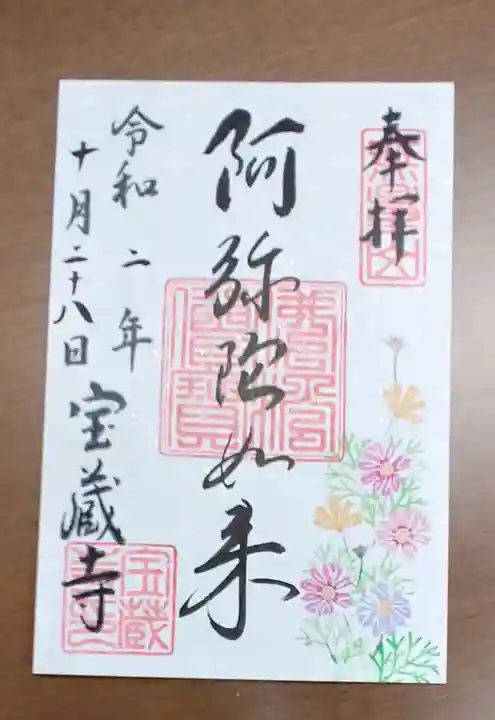 奉拝
阿弥陀如来
令和二年
十月二十八日
宝蔵寺